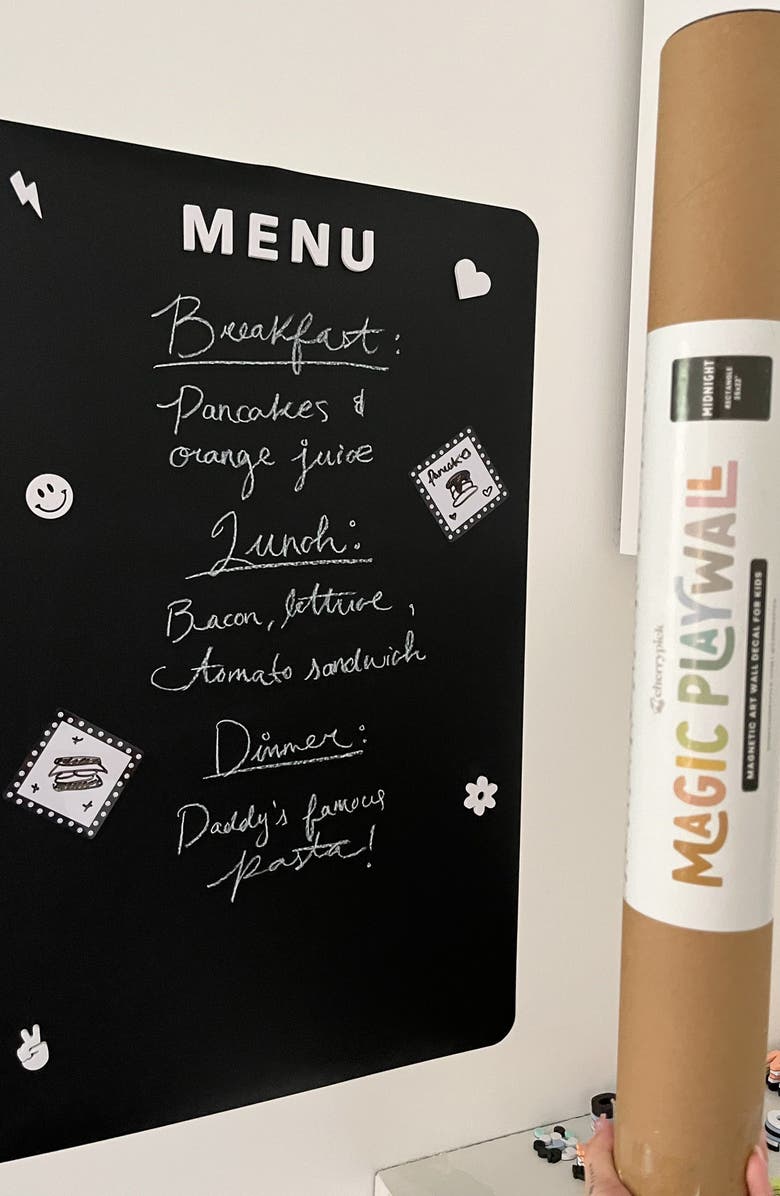 MENU
Breakfast:
Pancakes &
orange juice
Pancakes
Lunch:
Bacon, lettuce,
tomato sandwich
Dinner:
Daddy's famous
pasta!
MIDNIGHT
RECTANGLE
cherrypick
MAGIC PLAYWALL
MAGNETIC ART WALL DECAL FOR KIDS